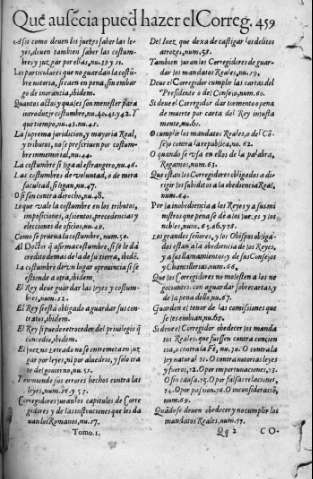 Que ausecia pued hazer el Correg. 459
Assi como deuen los juezes saber las leyes,
deuen tambien saber las costumbres
y juzgar por ellas, nu.39 y 21.
Los particulares que no guardan la costumbre
notoria, si caen en pena, sin embargo
de inorancia, ibidem.
Quantos actos y quales son menester para
introduzir costumbre, nu.40.41.y 42. Y
que tiempo, nu.43.
La suprema juridicion, y mayoria Real,
y tributos, no se prescriuen por costumbre
inmemorial, nu.44.
La costumbre si liga al estrangero, nu.46.
Las costumbres de voluntad, o de mera
facultad, si ligan, nu.47.
O si son contra derecho, nu.48.
Lo que vale la costumbre en los tributos,
imposiciones, assientos, precedencias y
elecciones de oficios, nu.49.
Como se prueua la costumbre, num.50.
Al Doctor q̃ afirma costumbre, si se le dà
credito demas de la de su tierra, ibidẽ.
La costumbre de vn lugar o prouincia si se
estiende a otra, ibidem.
El Rey deue guardar las leyes y costumbres,
num.52.
El Rey si està obligado a guardar sus contratos,
ibidem.
El Rey si puede retroceder del priuilegio q̃
concedio, ibidem.
El juez no
por leyes, ni por aluedrio, y solo trata
del gouierno, nu.51.
hechos contra las
leyes,
Corregidores juran los capitulos de Corregidores
y de las instruciones que les dauan
los Romanos, nu.17.
Tomo.1.
Del Juez que dexa de castigar los delitos
atrozes, num.58.
Tambien juran los Corregidores de guardar
los mandatos Reales, nu.59.
Deue el Corregidor cumplir las cartas del
Presidente o del Consejo, num.60.
Si deue el Corregidor dar tormento o pena
de muerte por carta del Rey injustamente,
nu.61.
O cumplir los mandatos Reales, o del Consejo
contra la republica, nu.62.
O quando se vsa en ellos de la palabra,
Rogamos, num.63.
Que estan los Corregidores obligados a dirigir
los subditos a la obediencia Real,
num.64.
Por la inobediencia a los Reyes y a sus ministros
que pena se dè a los juezes y los
nobles, num.65.
Los grandes señores, y los Obispos obligados
estan a la obediencia de los Reyes,
y a sus llamamientos y de sus Consejos
y Chancillerias, num.66.
Que los Corregidores no molesten a los negociantes
con aguardar sobrecartas, y
de la pena dello, nu.67.
Guarden el tenor de las comissiones que
se les embian, nu.69.
Si deue el Corregidor obedecer los mandatos
Reales que fuessen contra conciencia,
o contra la Fè, nu.70. O contra la
ley natural 71. O contra nueuas leyes
y fueros, 72. O por importunaciones, 73.
O sin causa. 75. O por falsa relacion,
num.69.
Quãdo se deuen obedecer y no cumplir los
mandatos Reales, num.57.
Qq 2 CO-